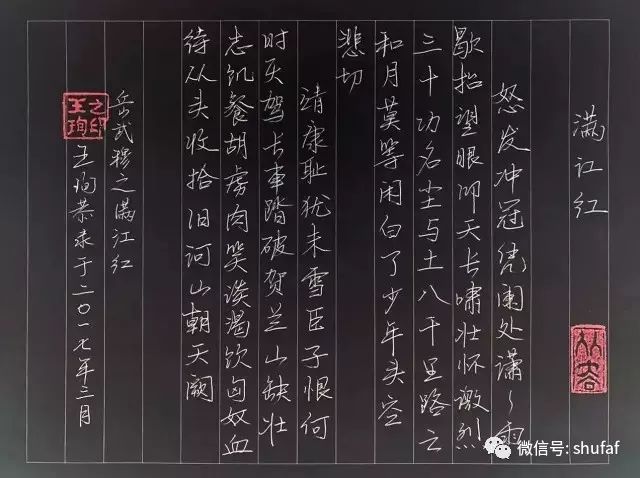 满江红
怒发冲冠凭阑处潇々雨
歇抬望眼仰天长啸壮怀激烈
三十功名尘与土八千里路云
和月莫等闲白了少年头空
悲切
靖康耻犹未雪臣子恨何
时灭驾长车踏破贺兰山缺壮
志饥餐胡虏肉笑谈渴饮匈奴血
待从头收拾旧河山朝天阙
岳武穆之满江红
王珣恭录于二〇一七年三月
王珣之印
微信号: shufaf